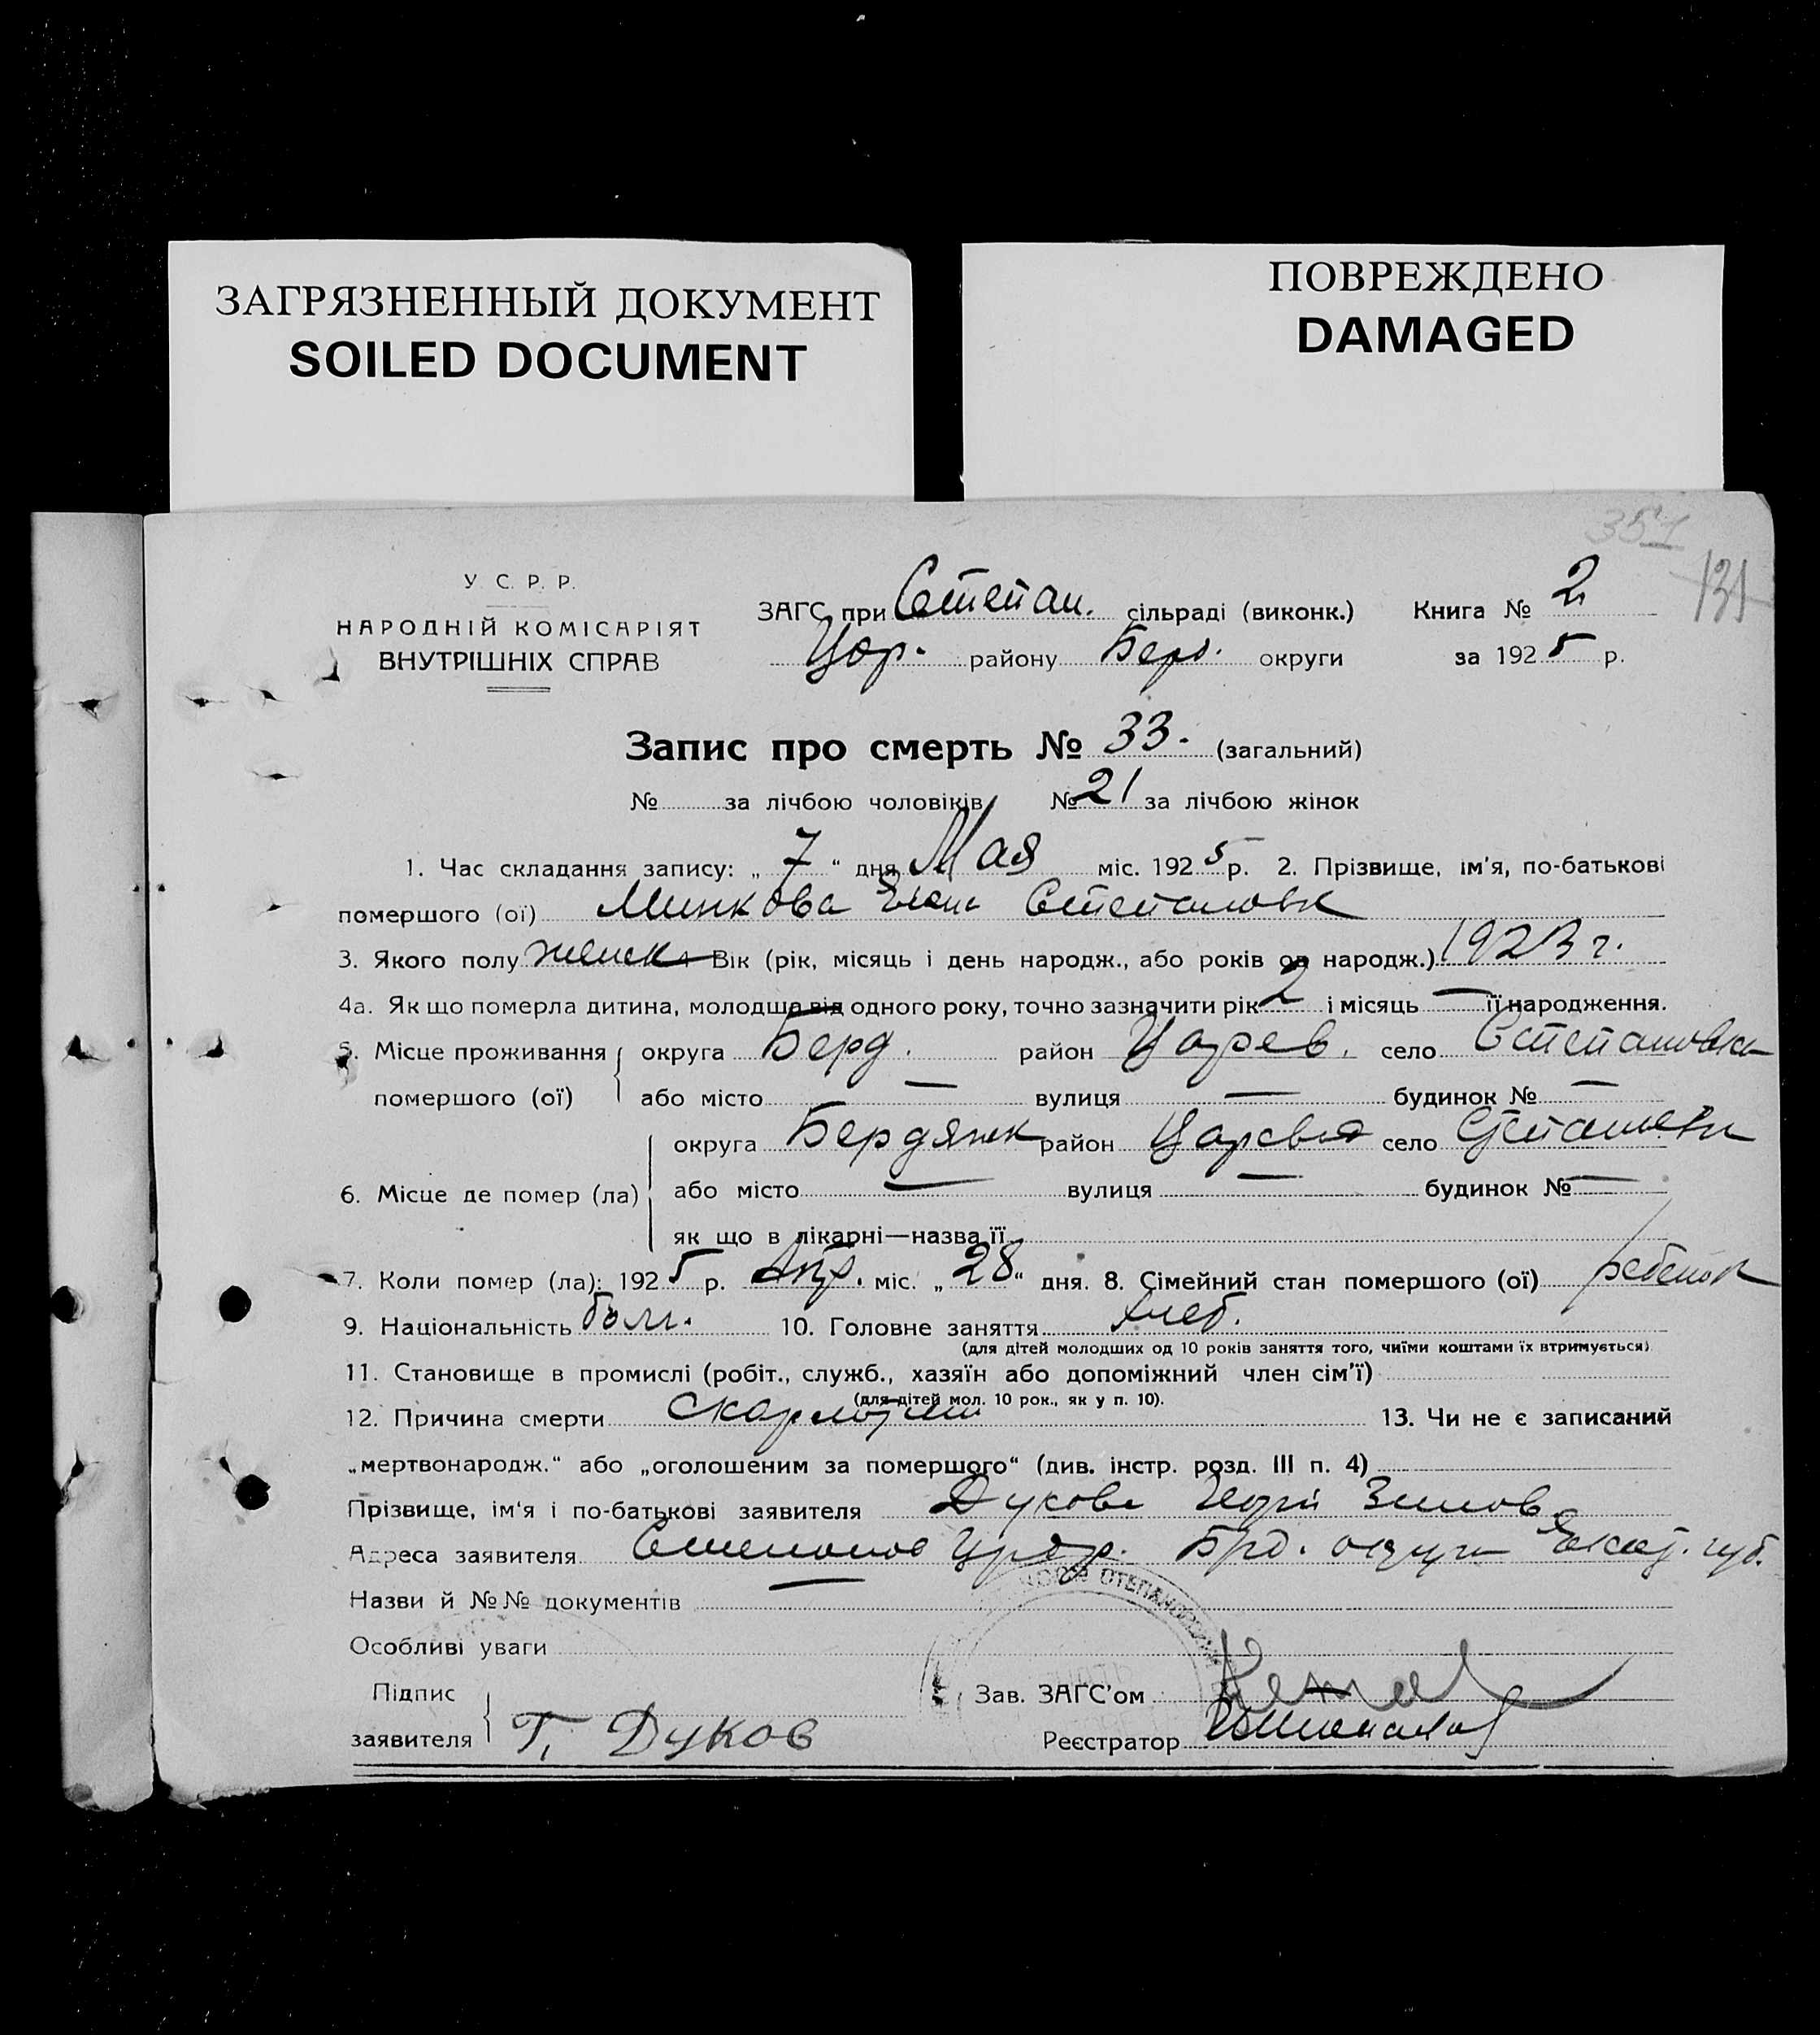 ЗАГРЯЗНЕННЫЙ ДОКУМЕНТ
SOILED DOCUMENT
ПОВРЕЖДЕНО
DAMAGED
351
131
У. С. Р. Р.
НАРОДНІЙ КОМІСАРІЯТ
ВНУТРІШНІХ СПРАВ
ЗАГС при Степан. сільраді (виконк.) Книга № 2
Цар. району Берд. округи за 1925 р.
Запис про смерть № 33. (загальний)
№ за лічбою чоловіків № 21 за лічбою жінок
1. Час складання запису: „7“ дня Мая міс. 1925 р. 2. Прізвище, ім'я, по-батькові
помершого (ої) Минкова Степановн
3. Якого полу женск 4 Вік (рік, місяць і день народж., або років од народж.) 1923 г.
4а. Як що померла дитина, молодша від одного року, точно зазначити рік 2 і місяць — її народження.
5. Місце проживання помершого (ої) округа Берд. район Царев. село Степановка
або місто — вулиця — будинок № —
6. Місце де помер (ла) округа Бердянск район село
або місто — вулиця — будинок № —
як що в лікарні—назва її
7. Коли помер (ла): 1925 р. Апр. міс. „28“ дня. 8. Сімейний стан помершого (ої) ребенок
9. Національність болг. 10. Головне заняття хлеб.
(для дітей молодших од 10 років заняття того, чиїми коштами їх втримується)
11. Становище в промислі (робіт., служб., хазяїн або допоміжний член сім'ї)
(для дітей мол. 10 рок., як у п. 10).
12. Причина смерти скарлатин 13. Чи не є записаний
„мертвонародж.“ або „оголошеним за помершого“ (див. інстр. розд. III п. 4)
Прізвище, ім'я і по-батькові заявителя Дуков
Адреса заявителя округи Екат. губ.
Назви й №№ документів —
Особливі уваги
Підпис заявителя Г. Дуков
Зав. ЗАГС'ом
Реєстратор